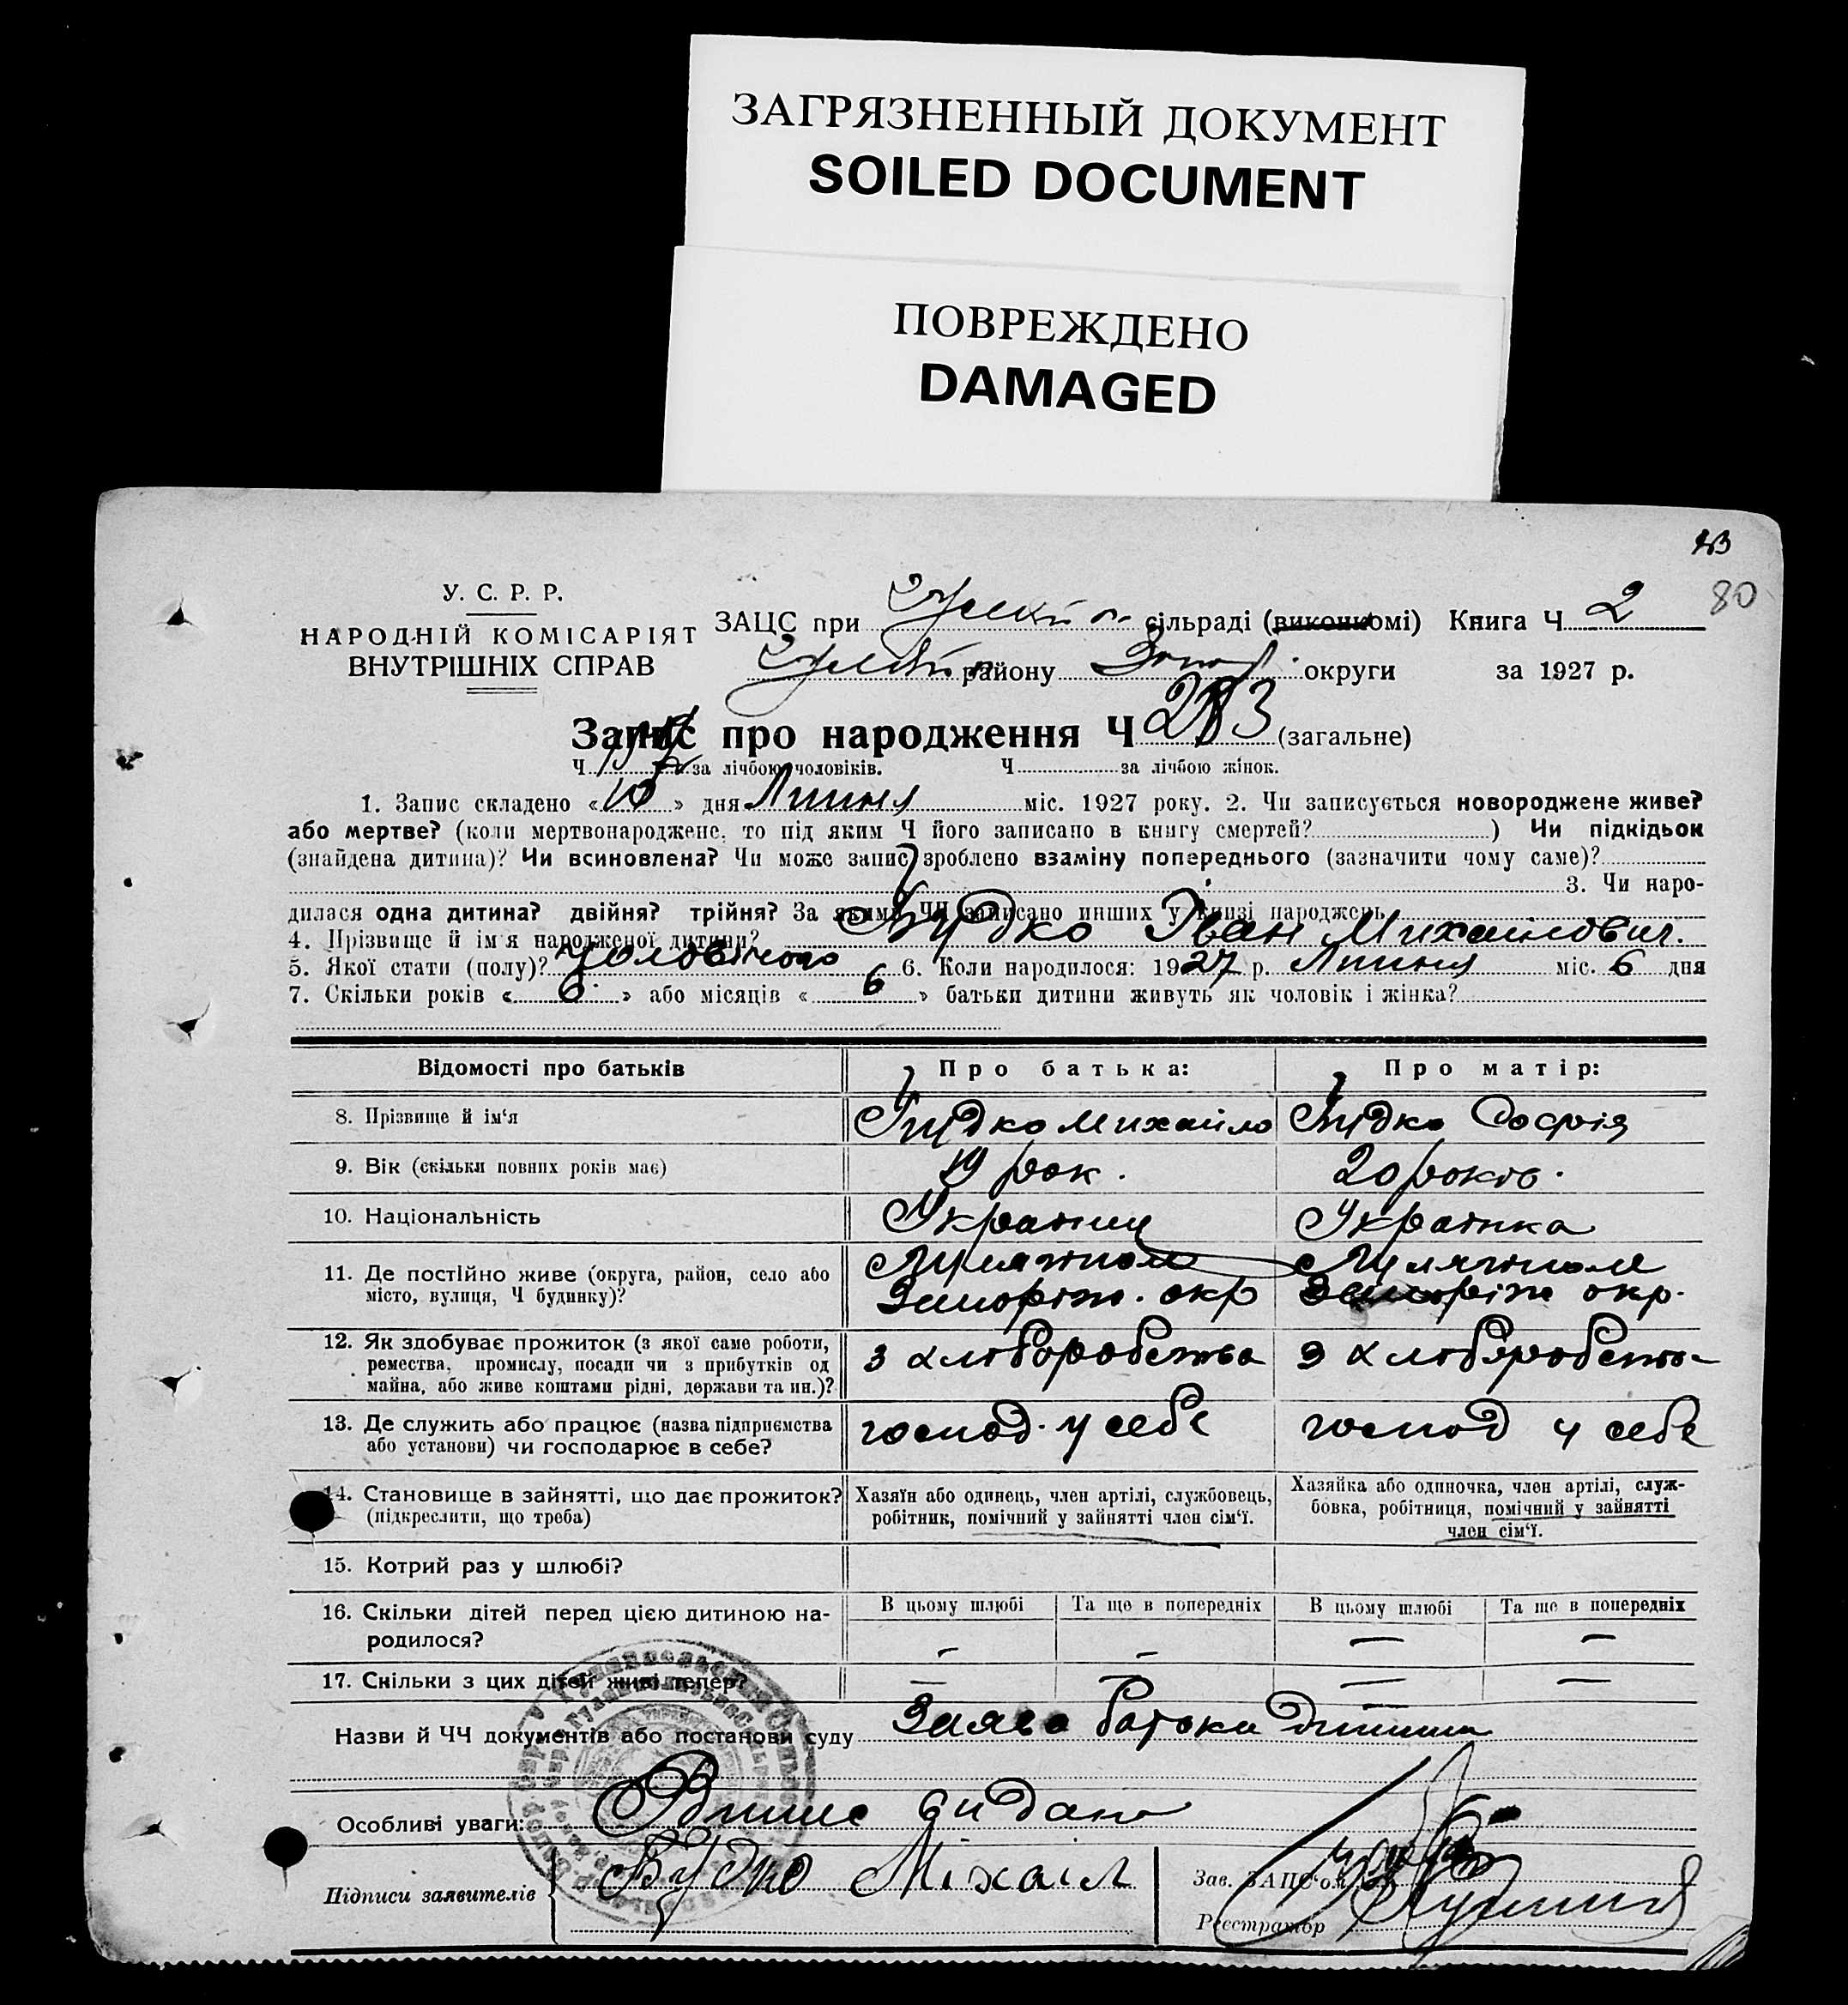 ЗАГРЯЗНЕННЫЙ ДОКУМЕНТ
SOILED DOCUMENT
ПОВРЕЖДЕНО
DAMAGED
80
У. С. Р. Р.
НАРОДНІЙ КОМІСАРІЯТ
ВНУТРІШНІХ СПРАВ
ЗАЦС при сільраді (виконкомі) Книга Ч 2
району округи за 1927 р.
Запис про народження Ч (загальне)
Ч за лічбою чоловіків. Ч за лічбою жінок.
1. Запис складено «10» дня Липня міс. 1927 року. 2. Чи записується новороджене живе?
або мертве? (коли мертвонароджене, то під яким Ч його записано в книгу смертей? ) Чи підкідьок
(знайдена дитина)? Чи всиновлена? Чи може запис зроблено взаміну попереднього (зазначити чому саме)?
3. Чи наро-
дилася одна дитина? двійня? трійня? За якими ЧЧ записано инших у книзі народжень
4. Прізвище й ім'я народженої дитини? Будко Іван Михайлович.
5. Якої стати (полу)? Чоловічого 6. Коли народилося: 1927 р. Липня міс. 6 дня
7. Скільки років «6» або місяців «6» батьки дитини живуть як чоловік і жінка?
Відомості про батьків Про батька: Про матір:
8. Прізвище й ім'я Будко Михайло Будко Софія
9. Вік (скільки повних років має) 19 рок. 20 років.
10. Національність Українец Українка
11. Де постійно живе (округа, район, село або
місто, вулиця, Ч будинку)? Запоріж. окр Запоріж окр.
12. Як здобуває прожиток (з якої саме роботи,
ремества, промислу, посади чи з прибутків од
майна, або живе коштами рідні, держави та ин.)? з хліборобства з хліборобства
13. Де служить або працює (назва підприємства
або установи) чи господарює в себе? господ. у себе господ у себе
14. Становище в зайнятті, що дає прожиток?
(підкреслити, що треба)
Хазяїн або одинець, член артілі, службовець,
робітник, помічний у зайнятті член сім'ї.
Хазяйка або одиночка, член артілі, служ-
бовка, робітниця, помічний у зайнятті
член сім'ї.
15. Котрий раз у шлюбі?
16. Скільки дітей перед цією дитиною на-
родилося?
В цьому шлюбі Та ще в попередніх В цьому шлюбі Та ще в попередніх
– – – –
17. Скільки з цих дітей живі тепер? – – – –
Назви й ЧЧ документів або постанови суду Заява батька дитини
Особливі уваги: видано
Підписи заявителів Будко Міхаіл
Зав. ЗАЦС'ом
Реєстратор